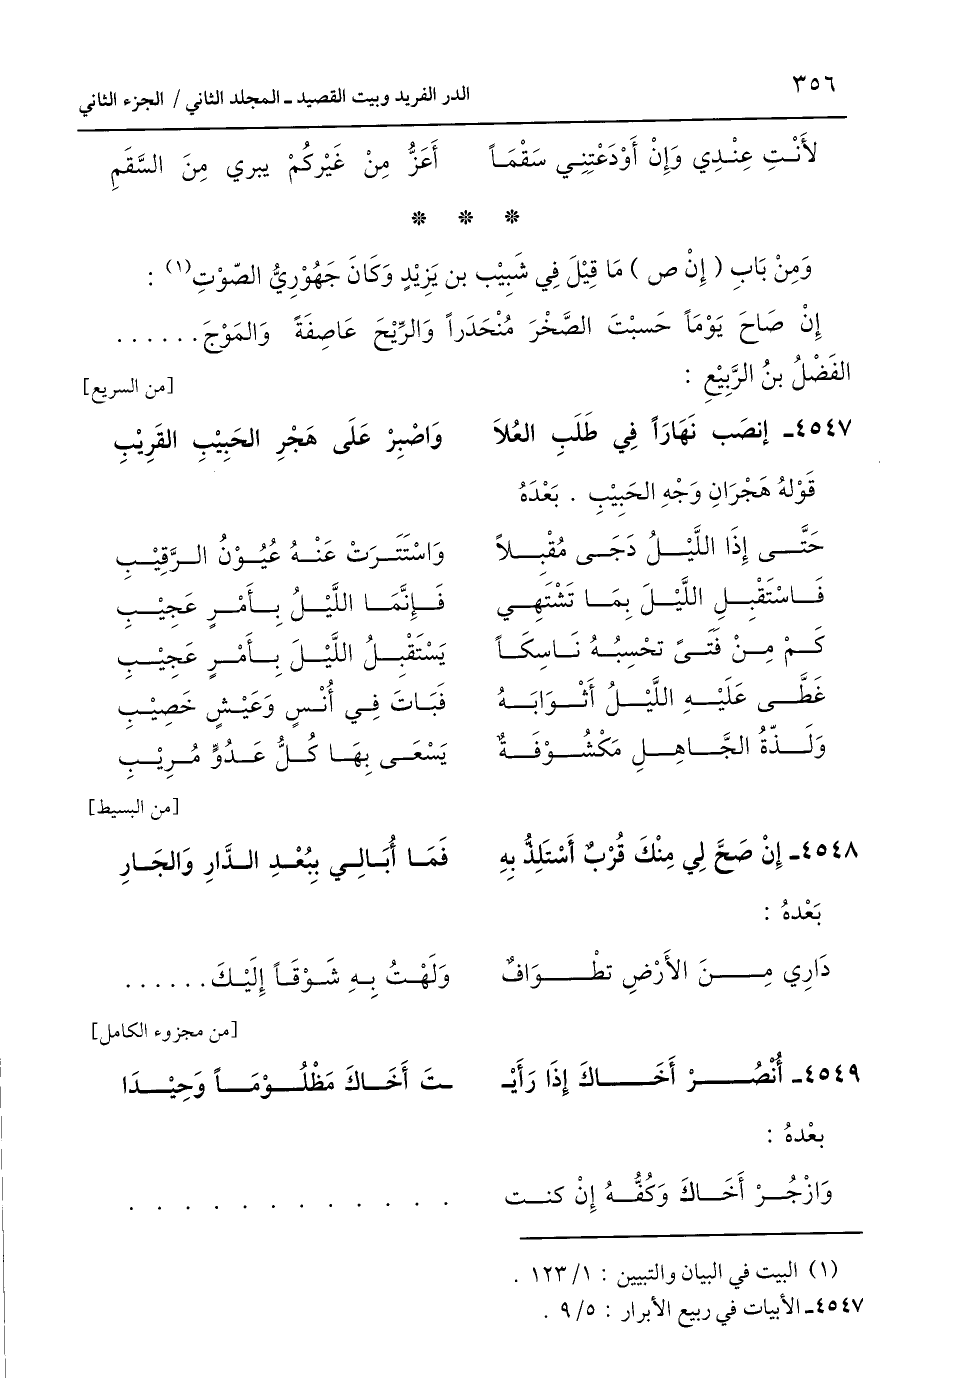 ٣٥٦
الدر الفريد وبيت القصيد ـ المجلد الثاني / الجزء الثاني
لأَنْتِ عِنْدِي وَإِنْ أَوْدَعْتِنِي سَقْمَاً أَعَزُّ مِنْ غَيْرِكُمْ يبري مِنَ السَّقَمِ
* * *
وَمِنْ بَابِ ( إِنْ ص ) مَا قِيْلَ فِي شَبِيْب بن يَزِيْدٍ وَكَانَ جَهْوَرِيُّ الصَّوْتِ(١) :
إِنْ صَاحَ يَوْمَاً حَسبْتَ الصَّخْرَ مُنْحَدرَاً وَالرِّيْحَ عَاصِفَةً وَالمَوْجَ......
الفَضْلُ بنُ الرَّبِيْعِ :
[من السريع]
٤٥٤٧ـ إِنصَب نَهَارَاً فِي طَلَبِ العُلَا وَاصْبِرْ عَلَى هَجْرِ الحَبِيْبِ القَرِيْبِ
قَوْلهُ هَجْرَانِ وَجْهِ الحَبِيْبِ . بَعْدَهُ
حَتَّـى إِذَا اللَّيْـلُ دَجَـى مُقْبِـلاً وَاسْتَتَـرَتْ عَنْـهُ عُيُـوْنُ الـرَّقِيْـبِ
فَـاسْتَقْبِـلِ اللَّيْـلَ بِمَـا تَشْتَهِـي فَـإِنَّمَـا اللَّيْـلُ بِـأَمْـرٍ عَجِيْـبِ
كَـمْ مِـنْ فَتَـىً تَحْسِبُـهُ نَـاسِكَـاً يَسْتَقْبِـلُ اللَّيْـلَ بِـأَمْـرٍ عَجِيْـبِ
غَطَّـى عَلَيْـهِ اللَّيْـلُ أَثْـوَابَـهُ فَبَـاتَ فِـي أُنْـسٍ وَعَيْـشٍ خَصِيْـبِ
وَلَـذَّةُ الجَّـاهِـلِ مَكْشُـوْفَـةٌ يَسْعَـى بِهَـا كُـلُّ عَـدُوٍّ مُـرِيْـبِ
[من البسيط]
٤٥٤٨ـ إِنْ صَحَّ لِي مِنْكَ قُرْبٌ أَسْتَلِذُّ بِهِ فَمَـا أُبَـالِـي بِبُعْـدِ الـدَّارِ وَالجَـارِ
بَعْدهُ :
دَارِي مِـنَ الأَرْضِ تطْـوَافٌ وَلَهْتُ بِهِ شَوْقَاً إِلَيْكَ......
[من مجزوء الكامل]
٤٥٤٩ـ أُنْصُـرْ أَخَـاكَ إِذَا رَأَيْـ ـتَ أَخَـاكَ مَظْلُـوْمَـاً وَحِيْـدَا
بعْدهُ :
وَازْجُـرْ أَخَـاكَ وَكُفُّـهُ إِنْ كنـت . . . . . . . . . . . .
(١) البيت في البيان والتبيين : ١/ ١٢٣ .
٤٥٤٧ـ الأبيات في ربيع الأبرار : ٥/ ٩ .